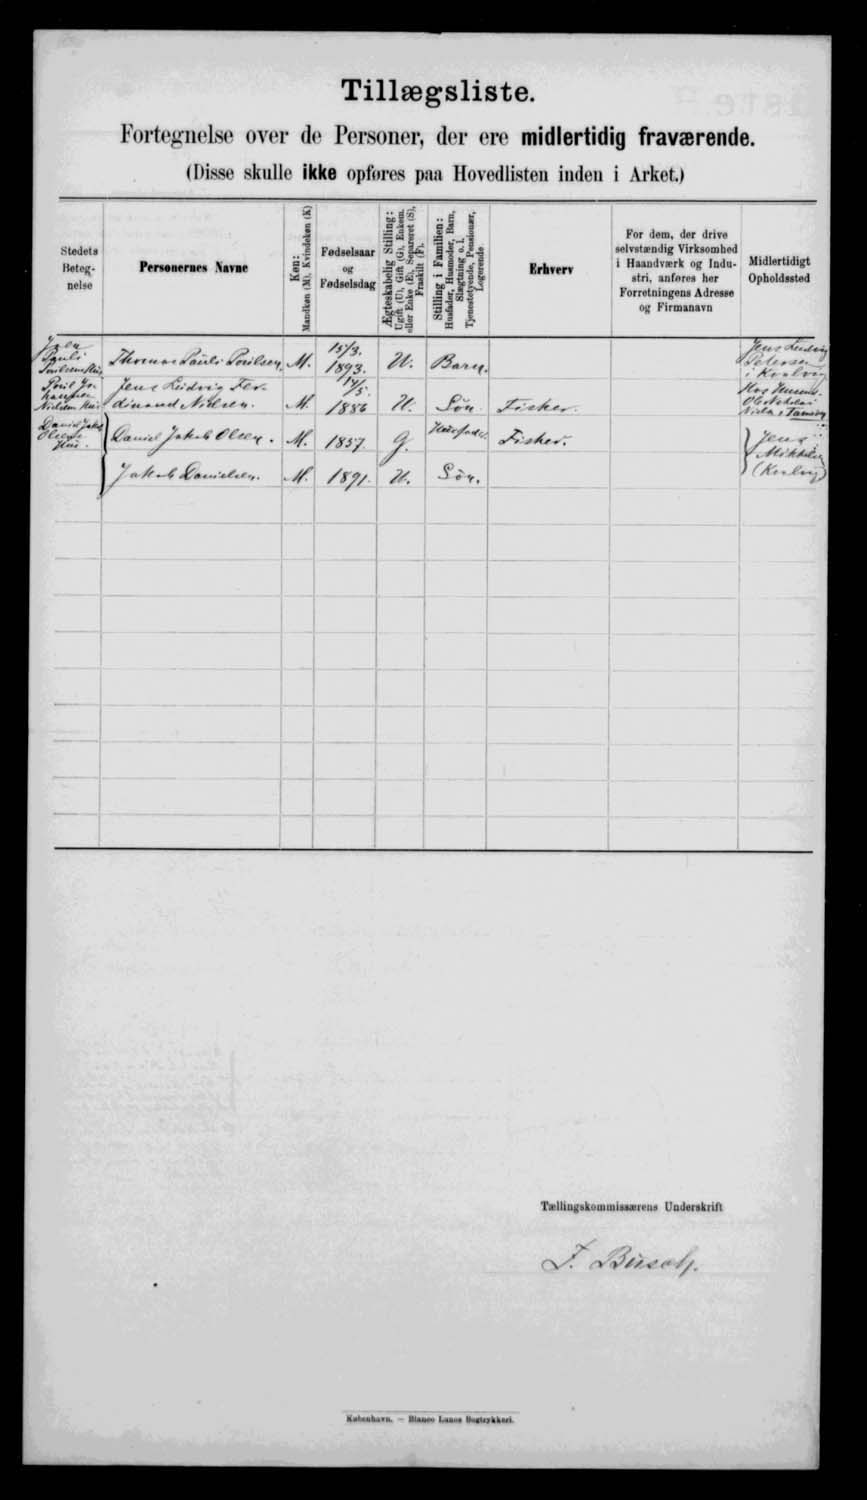 Tillægsliste.
Fortegnelse over de Personer, der ere midlertidig fraværende.
(Disse skulle ikke opføres paa Hovedlisten inden i Arket.)
Stedets
Beteg-
nelse
Personernes Navne
Køn:
Mandkøn (M), Kvindekøn (K)
Fødselsaar
og
Fødselsdag
Ægteskabelig Stilling:
Ugift (U), Gift (G), Enkem.
eller Enke (E), Separeret (S),
Fraskilt (F).
Stilling i Familien:
Husfader, Husmoder, Barn,
Slægtning o. l.
Tjenestetyende, Pensionær,
Logerende
Erhverv
For dem, der drive
selvstændig Virksomhed
i Haandværk og Indu-
stri, anføres her
Forretningens Adresse
og Firmanavn
Midlertidigt
Opholdssted
Pauli
Poulsens Hus
Thomas Pauli Poulsen.
M.
15/3.
1893.
U.
Barn.
Jens Ludvig
Petersen
i Kvalvig
Poul Jo-
hansen
Nielsens Hus
Jens Ludvig Fer-
dinand Nielsen.
M.
1886
U.
Søn.
Fisker.
Ole Nikolai
Daniel Jakob
Olsens
Hus.
Daniel Jakob Olsen.
M.
1857.
G.
Husfader.
Fisker.
Jens
Mikkelsen
(Kvalvig)
Jakob Danielsen.
M.
1891.
U.
Søn.
Tællingskommissærens Underskrift
F. Busch.
København. — Bianco Lunos Bogtrykkeri.